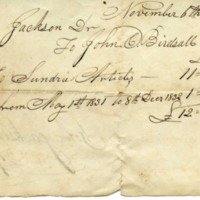 November 6th
Jackson Dr
To John C Birdsall
To Sundrie Articles — 11
from May 1st 1831 to 8th Decr 1832 1
£12